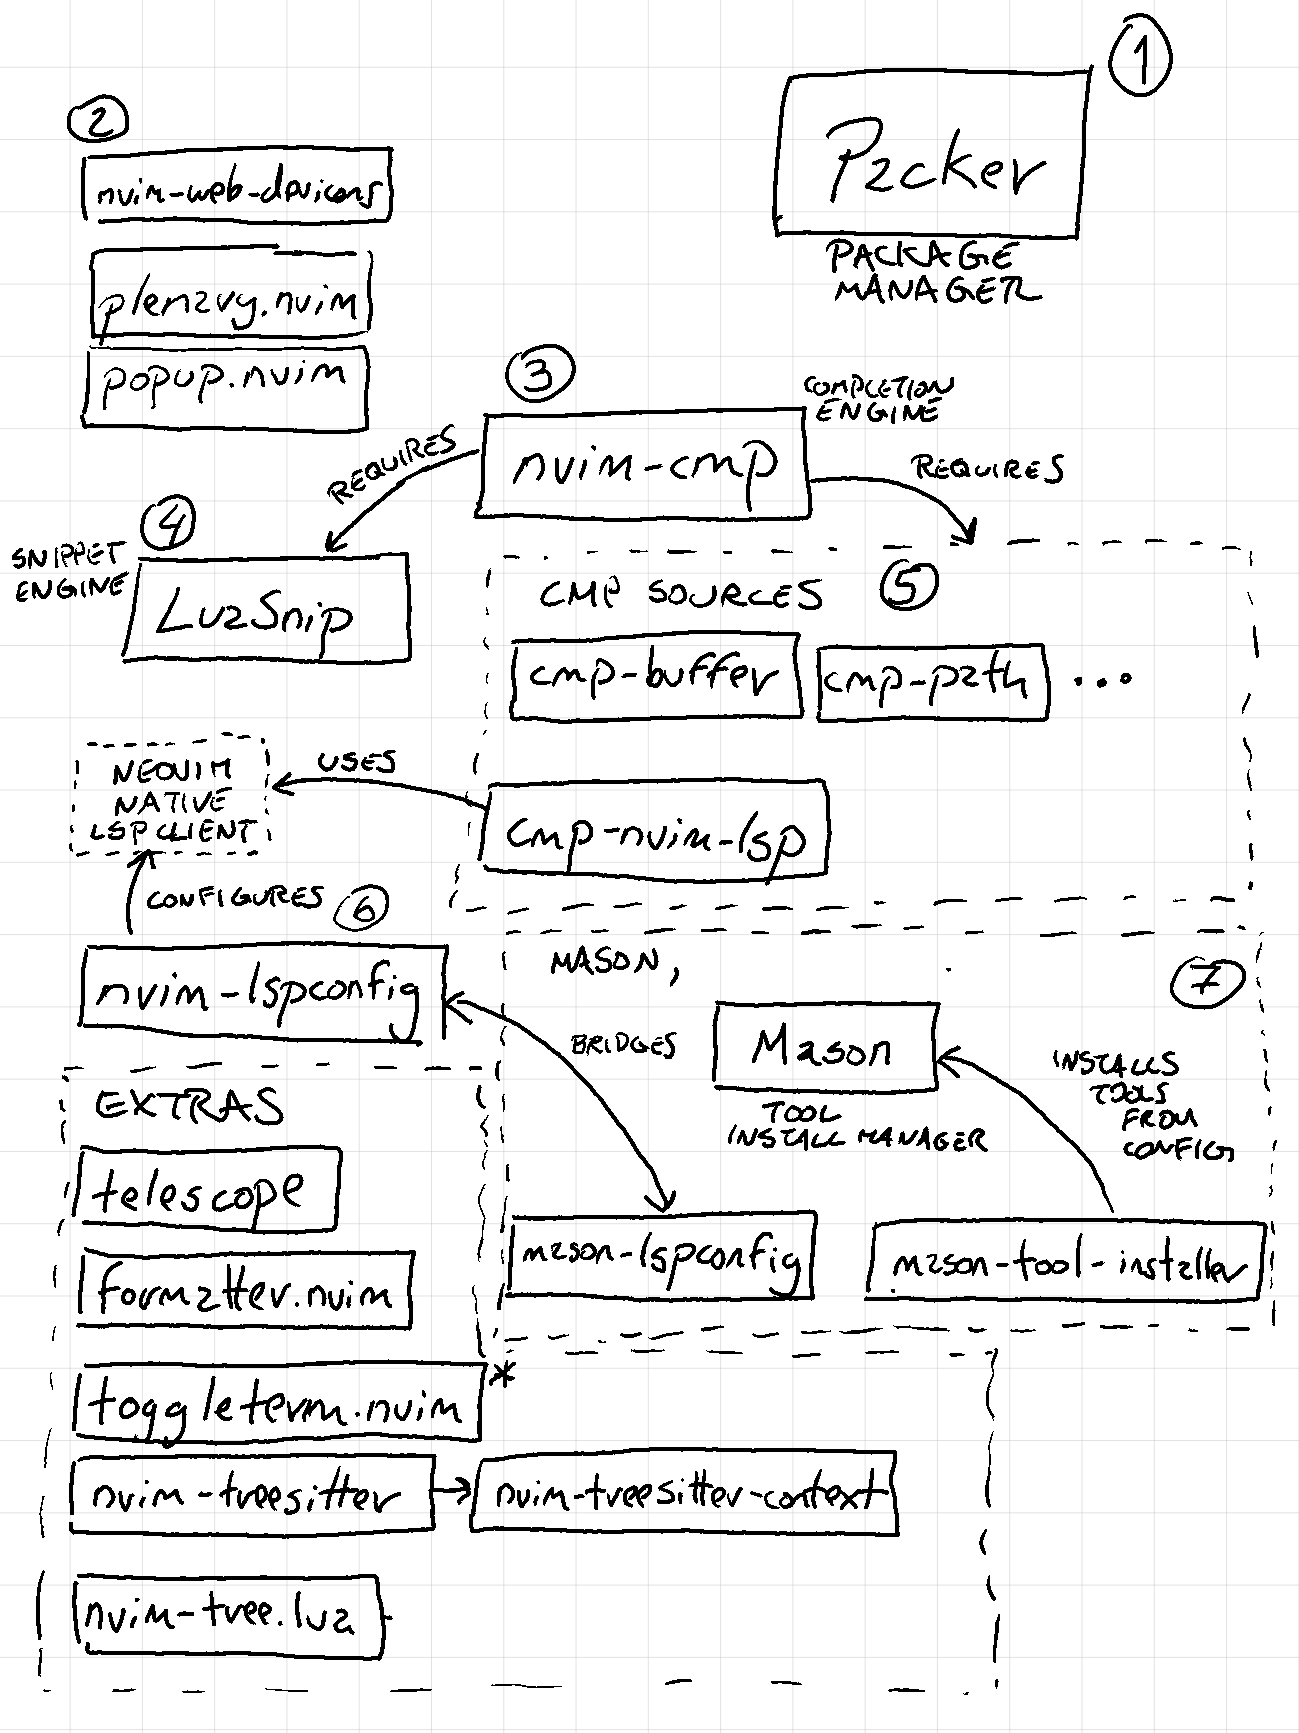 1
Packer
PACKAGE
MANAGER
2
nvim-web-devicons
plenary.nvim
popup.nvim
3
nvim-cmp
COMPLETION
ENGINE
REQUIRES
REQUIRES
4
SNIPPET
ENGINE
LuaSnip
CMP SOURCES
5
cmp-buffer
cmp-path
...
cmp-nvim-lsp
USES
NEOVIM
NATIVE
LSP CLIENT
CONFIGURES
6
nvim-lspconfig
MASON,
7
BRIDGES
Mason
TOOL
INSTALL MANAGER
INSTALLS
TOOLS
FROM
CONFIG
mason-lspconfig
mason-tool-installer
EXTRAS
telescope
formatter.nvim
toggleterm.nvim *
nvim-treesitter
nvim-treesitter-context
nvim-tree.lua